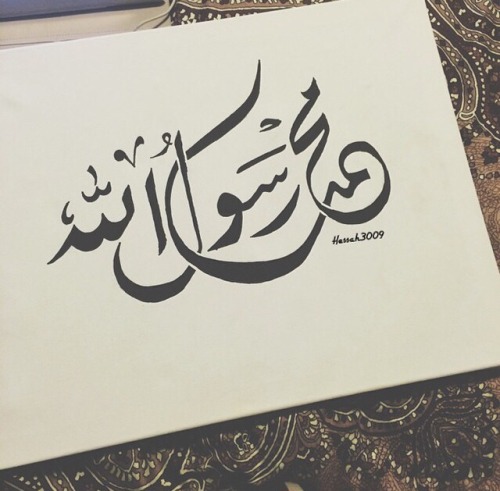 محمد رسول الله
Hessah3009